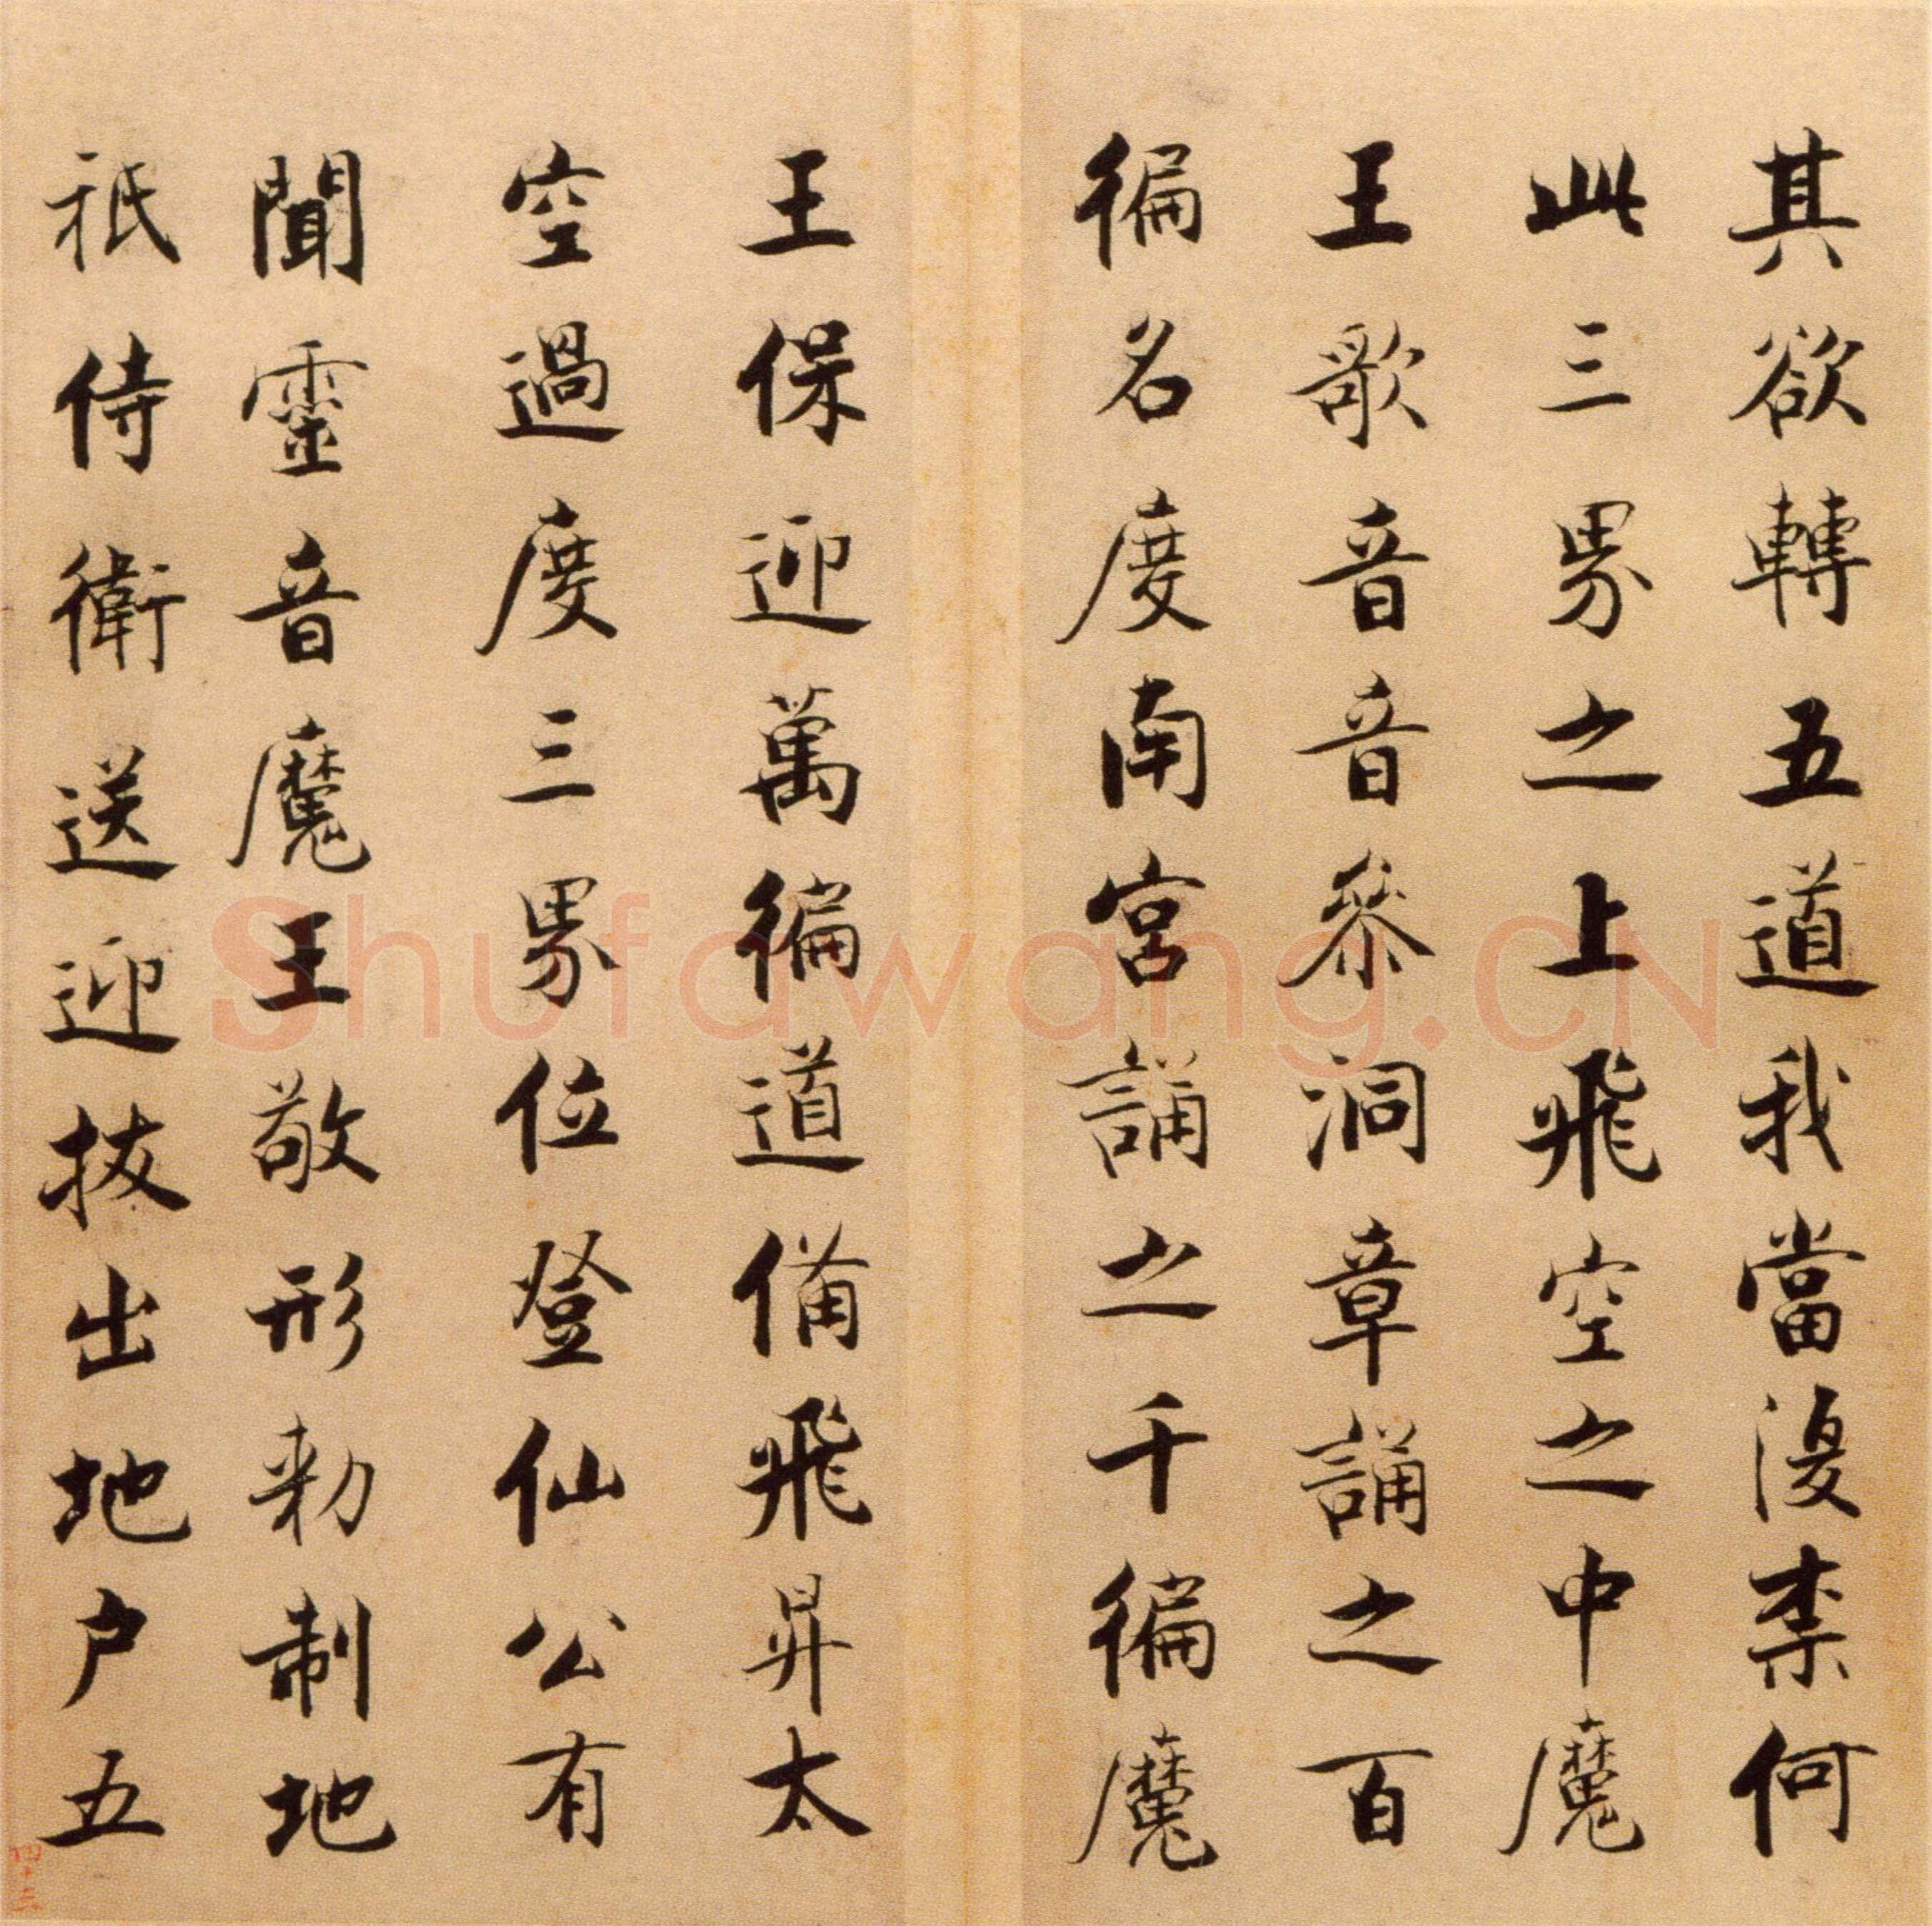 其欲轉五道我當復柰何
此三界之上飛空之中魔
王歌音音參洞章誦之百
徧名度南宮誦之千徧魔
王保迎萬徧道備飛昇太
空過度三界位登仙公有
聞靈音魔王敬形勑制地
祇侍衛送迎拔出地户五
Shufawang.CN